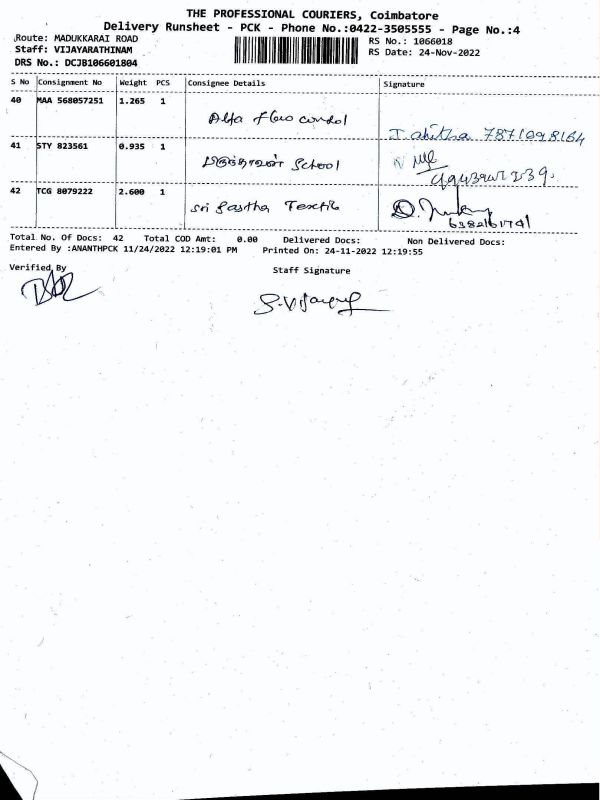 THE PROFESSIONAL COURIERS, Coimbatore
Delivery Runsheet - PCK - Phone No.:0422-3505555 - Page No.:4
Route: MADUKKARAI ROAD RS No.: 1066018
Staff: VIJAYARATHINAM RS Date: 24-Nov-2022
DRS No.: DCJB106601804
S No Consignment No Weight PCS Consignee Details Signature
40 MAA 568057251 1.265 1
Alfa flow control
7871098164
41 STY 823561 0.935 1
School
42 TCG 8079222 2.600 1
Sri Sastha Textile
6382161741
Total No. Of Docs: 42 Total COD Amt: 0.00 Delivered Docs: Non Delivered Docs:
Entered By :ANANTHPCK 11/24/2022 12:19:01 PM Printed On: 24-11-2022 12:19:55
Verified By Staff Signature